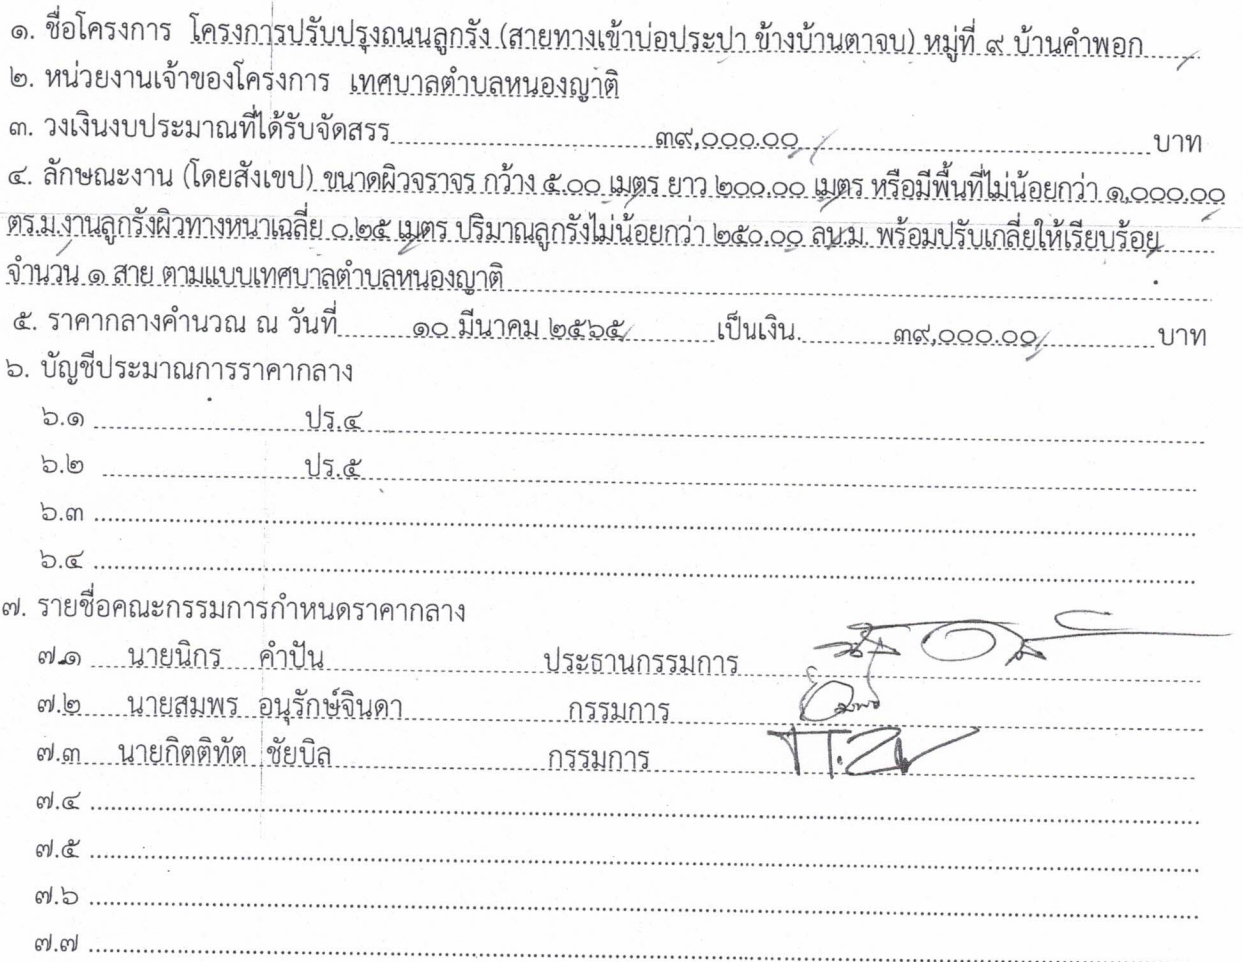 ๑. ชื่อโครงการ โครงการปรับปรุงถนนลูกรัง (สายทางเข้าบ่อประปา ข้างบ้านตาจบ) หมู่ที่ ๙ บ้านคำพอก
๒. หน่วยงานเจ้าของโครงการ เทศบาลตำบลหนองญาติ
๓. วงเงินงบประมาณที่ได้รับจัดสรร ๓๙,๐๐๐.๐๐ บาท
๔. ลักษณะงาน (โดยสังเขป) ขนาดผิวจราจร กว้าง ๕.๐๐ เมตร ยาว ๒๐๐.๐๐ เมตร หรือมีพื้นที่ไม่น้อยกว่า ๑,๐๐๐.๐๐
ตร.ม.งานลูกรังผิวทางหนาเฉลี่ย ๐.๒๕ เมตร ปริมาณลูกรังไม่น้อยกว่า ๒๕๐.๐๐ ลบ.ม. พร้อมปรับเกลี่ยให้เรียบร้อย
จำนวน ๑ สาย ตามแบบเทศบาลตำบลหนองญาติ
๕. ราคากลางคำนวณ ณ วันที่ ๑๐ มีนาคม ๒๕๖๕ เป็นเงิน ๓๙,๐๐๐.๐๐ บาท
๖. บัญชีประมาณการราคากลาง
๖.๑ ปร.๔
๖.๒ ปร.๕
๖.๓
๖.๔
๗. รายชื่อคณะกรรมการกำหนดราคากลาง
๗.๑ นายนิกร คำปัน ประธานกรรมการ
๗.๒ นายสมพร อนุรักษ์จินดา กรรมการ
๗.๓ นายกิตติทัต ชัยบิล กรรมการ
๗.๔
๗.๕
๗.๖
๗.๗